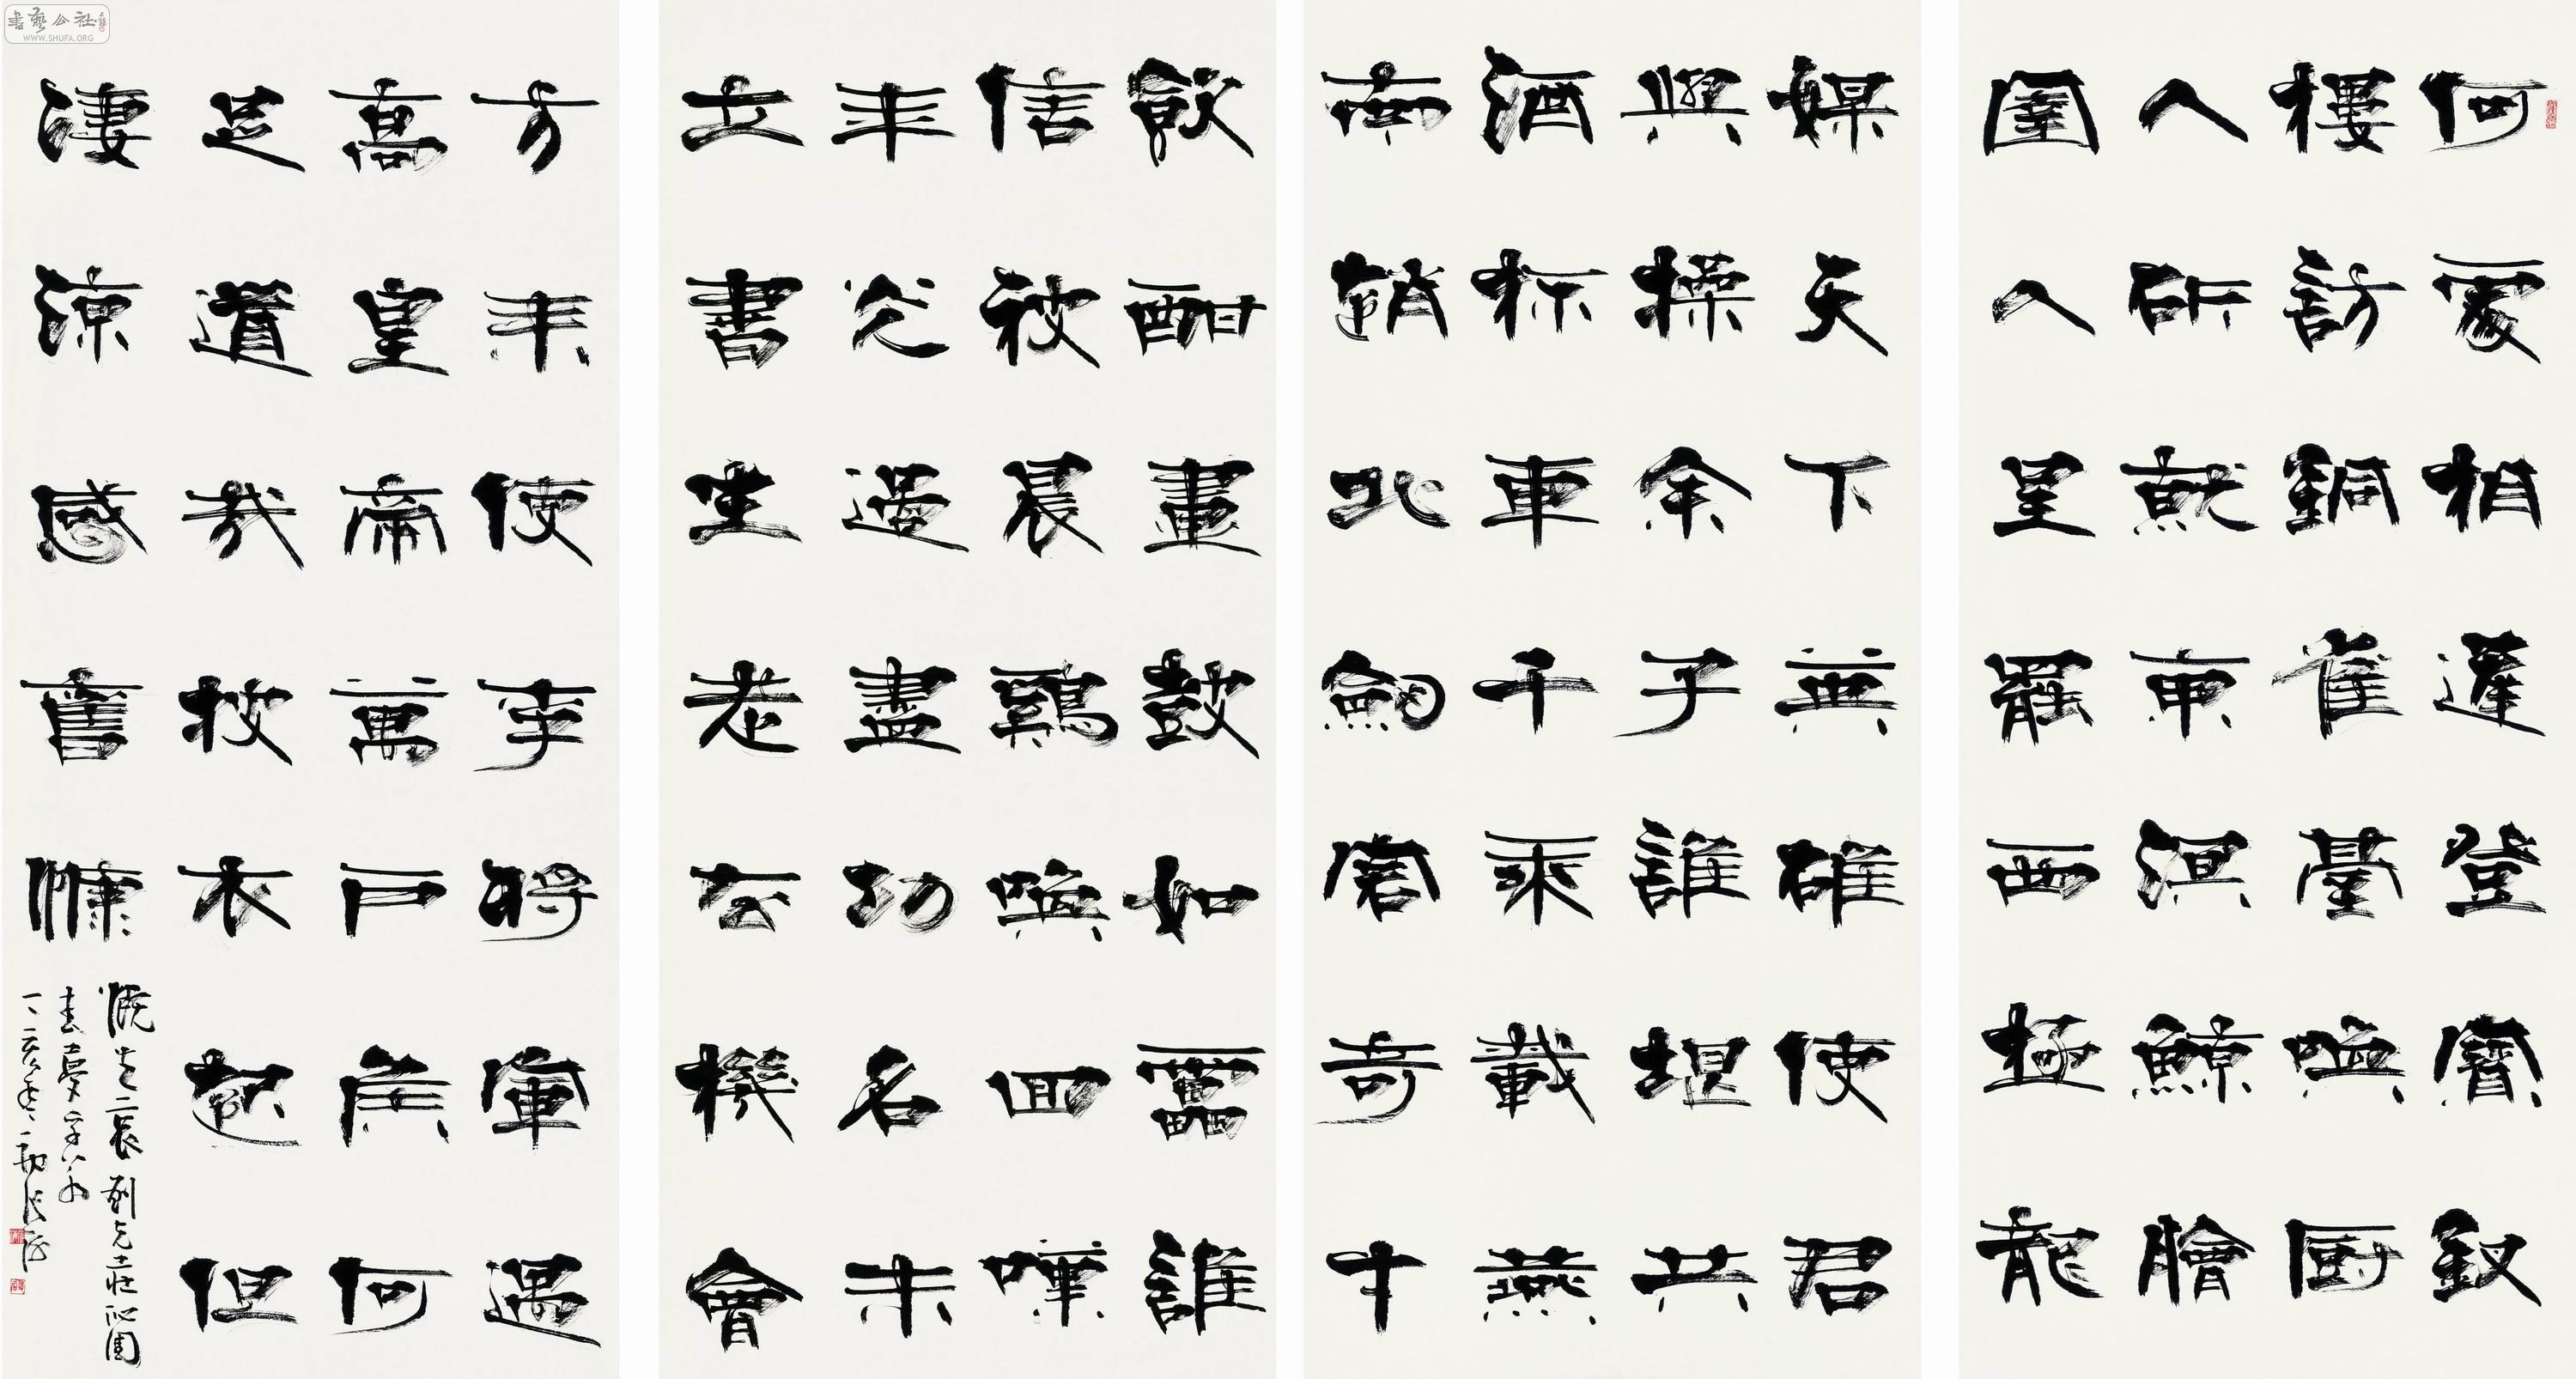 何處相逢登寶釵
樓訪銅雀臺喚厨
人斫就東溟鯨膾
圉人呈罷西極龍
媒天下英雄使君
與操余子誰堪共
酒杯車千乘載燕
南趙北劍客奇才
飲酣畫鼓如靁誰
信被晨鷄喚回嘆
年光過盡功名未
立書生老去機會
方來使李將軍遇
高皇帝萬戶侯何
足道哉披衣起但
淒涼感舊慷
慨生哀劉克莊沁園
春夢孚若
丁亥年張海
書藝公社
WWW.SHUFA.ORG